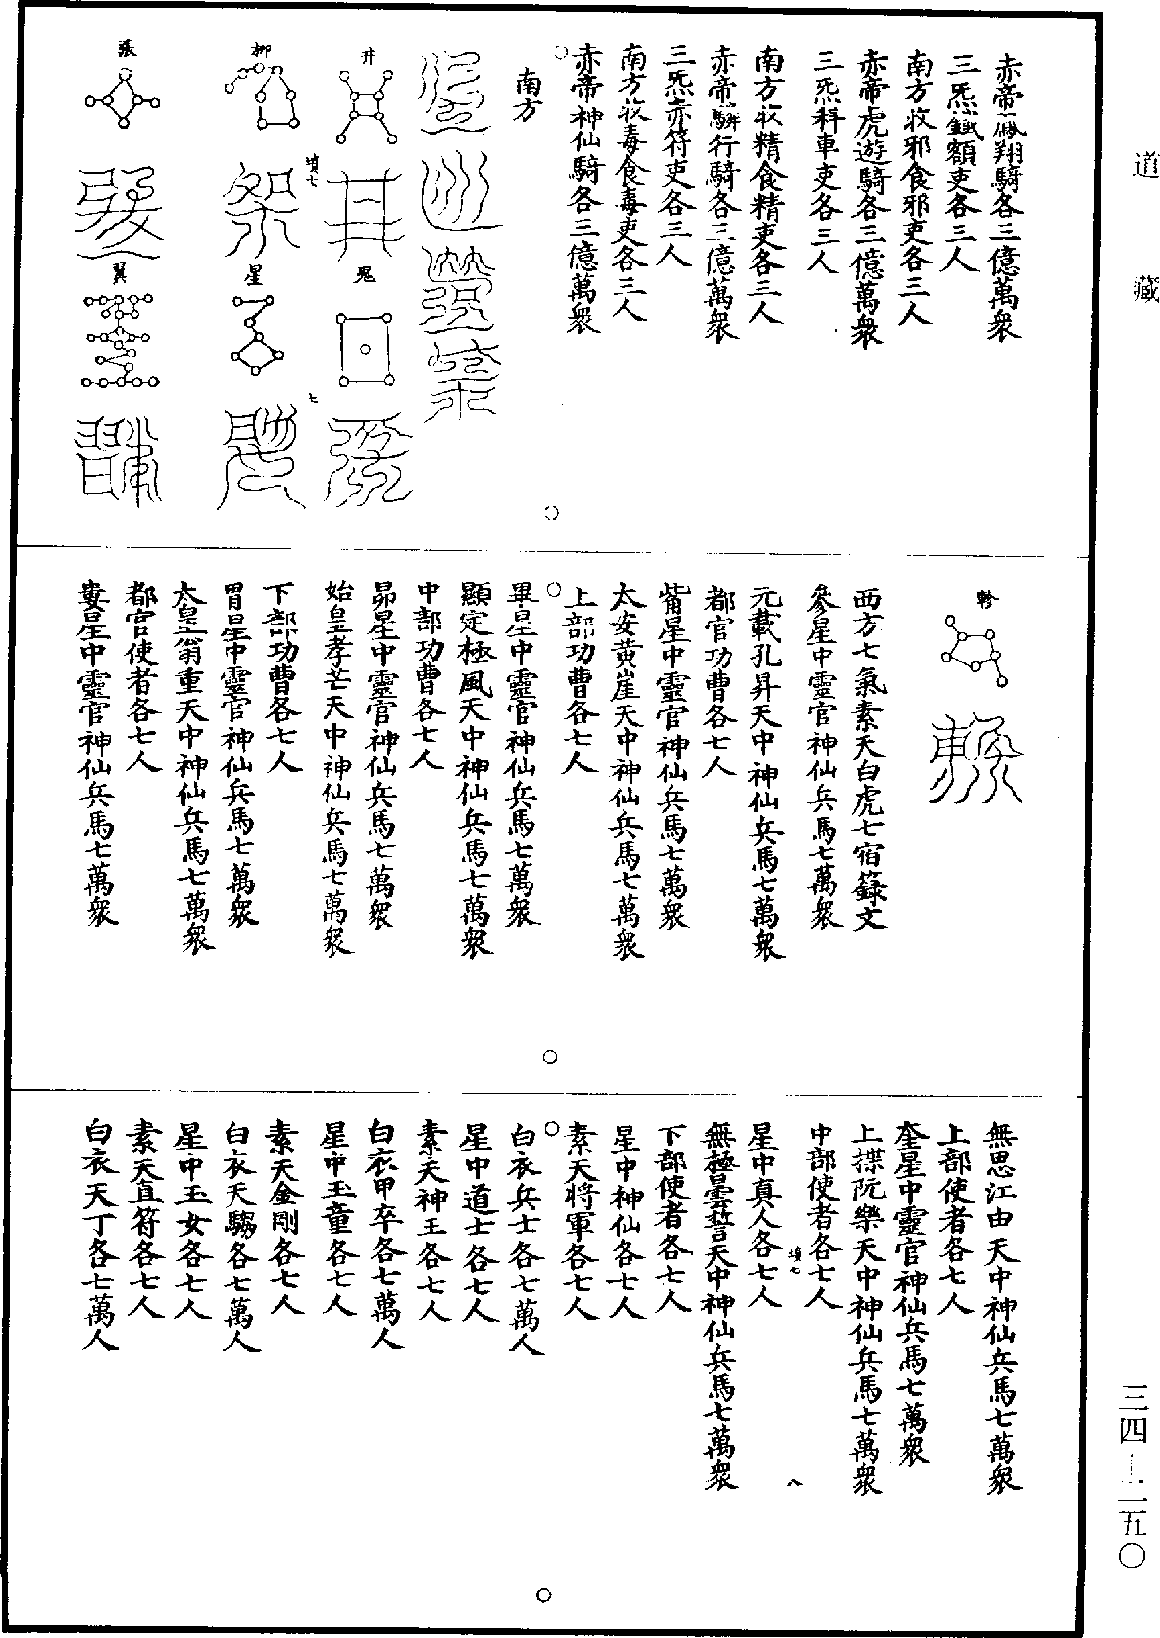 道藏
赤帝飈翔騎各三億萬衆
三炁鉞額吏各三人
南方收邪食邪吏各三人
赤帝虎遊騎各三億萬衆
三炁科車吏各三人
南方收精食精吏各三人
赤帝騈行騎各三億萬衆
三炁赤符吏各三人
南方收毒食毒吏各三人
赤帝神仙騎各三億萬衆
南方
井
鬼
柳
星
張
翼
軫
西方七氣素天白虎七宿籙文
參星中靈官神仙兵馬七萬衆
元載孔昇天中神仙兵馬七萬衆
都官功曹各七人
觜星中靈官神仙兵馬七萬衆
太安黄崖天中神仙兵馬七萬衆
上部功曹各七人
畢星中靈官神仙兵馬七萬衆
顯定極風天中神仙兵馬七萬衆
中部功曹各七人
昴星中靈官神仙兵馬七萬衆
始皇孝芒天中神仙兵馬七萬衆
下部功曹各七人
胃星中靈官神仙兵馬七萬衆
太皇翁重天中神仙兵馬七萬衆
都官使者各七人
婁星中靈官神仙兵馬七萬衆
無思江由天中神仙兵馬七萬衆
上部使者各七人
奎星中靈官神仙兵馬七萬衆
上揲阮樂天中神仙兵馬七萬衆
中部使者各七人
星中真人各七人
無極曇誓天中神仙兵馬七萬衆
下部使者各七人
星中神仙各七人
素天將軍各七人
白衣兵士各七萬人
星中道士各七人
素天神王各七人
白衣甲卒各七萬人
星中玉童各七人
素天金剛各七人
白衣天騶各七萬人
星中玉女各七人
素天直符各七人
白衣天丁各七萬人
三四—二五〇